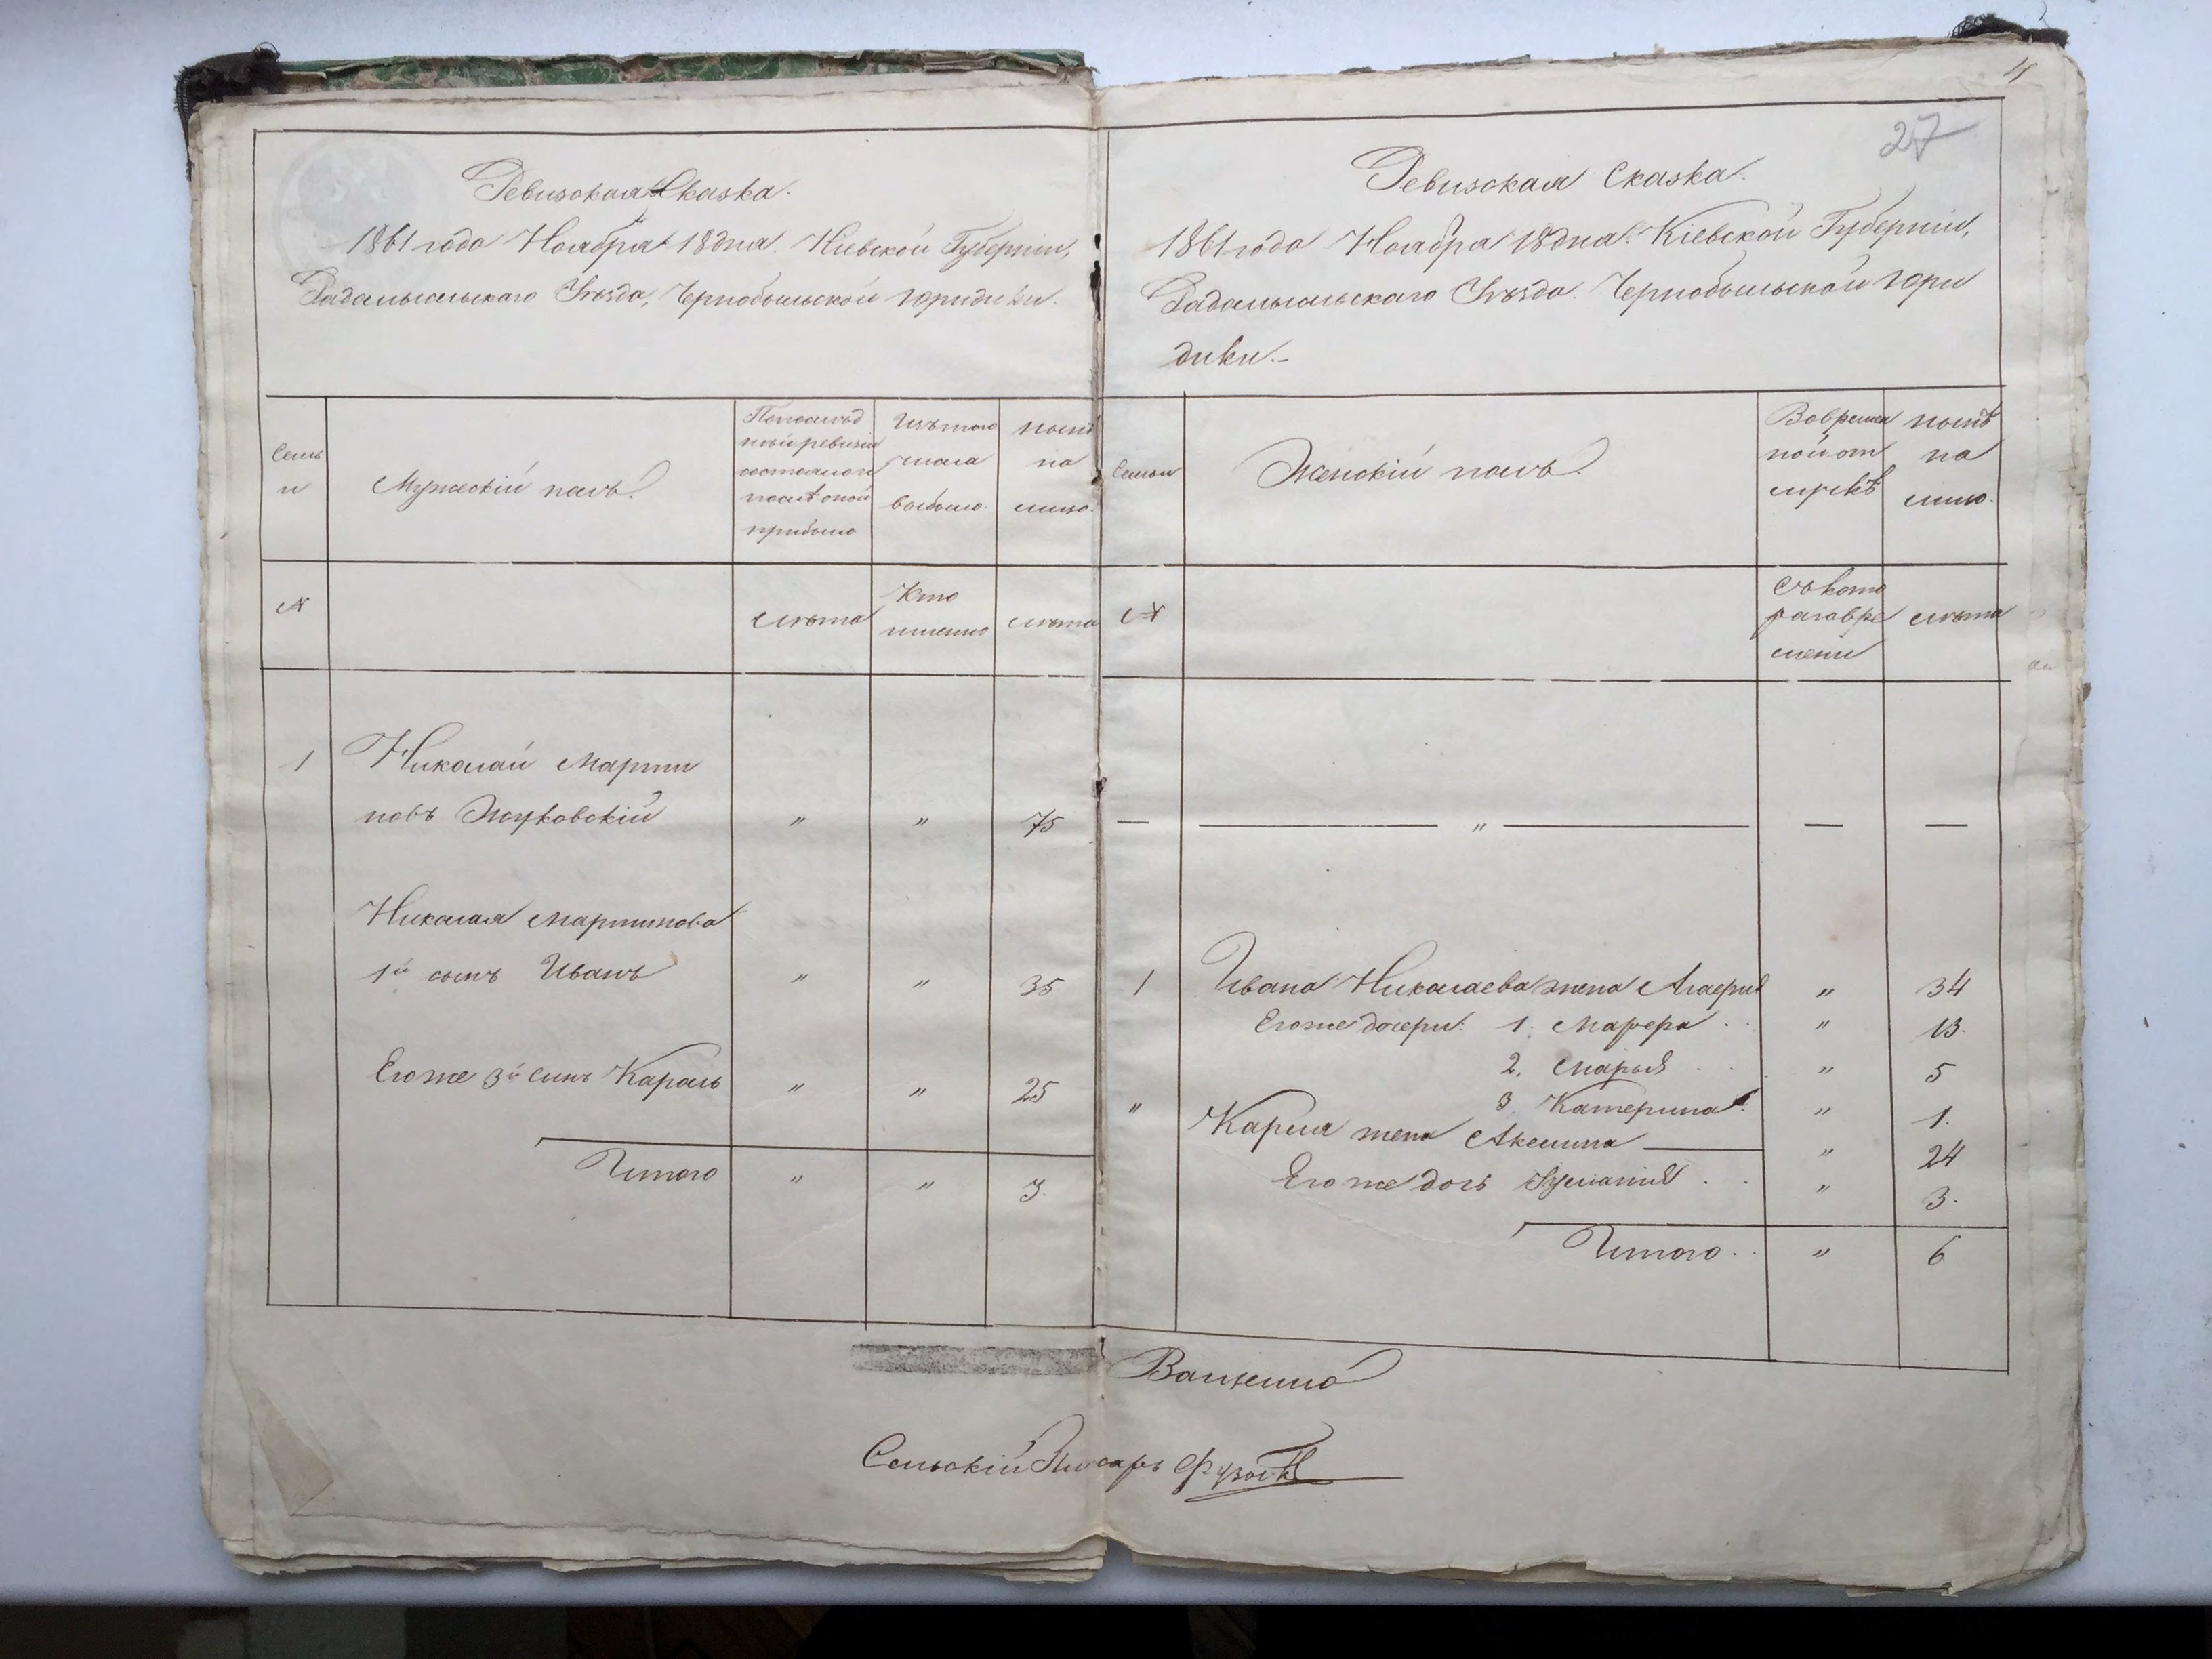 Ревизская Сказка.
1861 года Ноября 18 дня. Кіевской Губерніи,
Радомысльскаго Уѣзда, Чернобыльской юридики.
Семь
и
Мужескій полъ.
По послѣд
ней ревизіи
состояло и
послѣ оной
прибыло
Изъ того
числа
выбыло.
Нынѣ
на
лицо.
№
Лѣта
Кто
именно
Лѣта
1
Николай Марти
новъ Жуковскій " " 75
Николая Мартинова
1й сынъ Иванъ " " 35
Его же 3й сынъ Кароль " " 25
Итого " " 3.
4
27
Ревизская Сказка.
1861 года Ноября 18 дня. Кіевской Губерніи,
Радомысльскаго Уѣзда. Чернобыльской юри
дики.-
Семьи
Женскій полъ.
Во времен
ной от
лучкѣ
Нынѣ
на
лицо.
№
Съ кото
раго вре
мени
Лѣта
— — " — — —
1 Ивана Николаева жена " 34
Его же дочери: 1. " 13.
2. Марья " 5
3. Катерина. " 1.
" Кароля жена Акемина — " 24
Его же дочь " 3.
Итого " 6
Сельскій Писарь